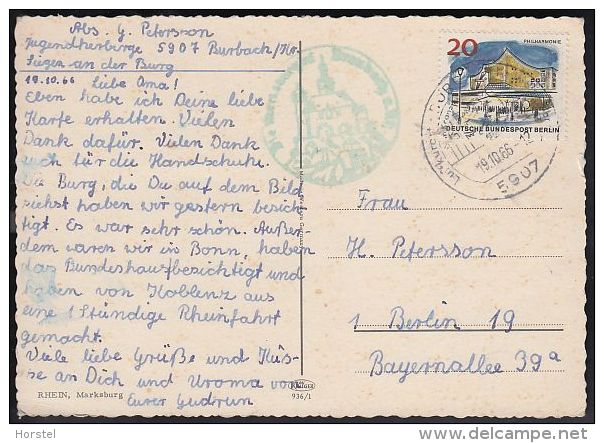 Abs. G. Petersson
Jugendherberge 5907 Burbach/Kr.
Siegen an der Burg
19.10.66 Liebe Oma!
Eben habe ich Deine liebe
Karte erhalten. Vielen
Dank dafür. Vielen Dank
auch für die Handschuhe.
Die Burg, die Du auf dem Bild
siehst haben wir gestern besich
tigt. Es war sehr schön. Außer-
dem waren wir in Bonn, haben
das Bundeshaus besichtigt und
haben von Koblenz aus
eine 1 Stündige Rheinfahrt
gemacht.
Viele liebe Grüße und Küs-
se an Dich und Uroma von
Eurer Gudrun
RHEIN, Marksburg
KRÜGER
936/1
20
PHILHARMONIE
DEUTSCHE BUNDESPORT BERLIN
19.10.66
5907
Frau
H. Petersson
1 Berlin 19
Bayernallee 39a
Horstel
delcampe.net